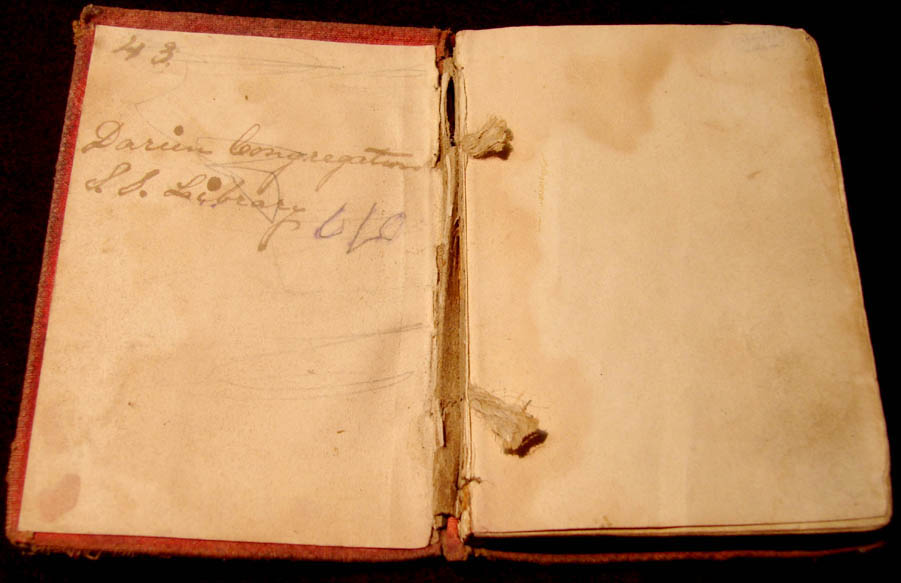 43.
Darien Congregation
S. S. Library